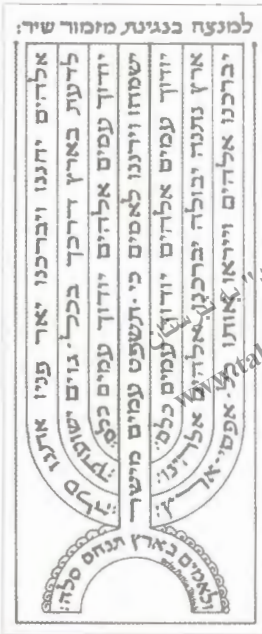 למנצח בנגינת מזמור שיר:
אלהים יחננו ויברכנו יאר פניו אתנו סלה:
לדעת בארץ דרכך בכל-גוים ישועתך:
יודוך עמים אלהים יודוך עמים כלם:
ישמחו וירננו לאמים כי-תשפט עמים מישר
ולאמים בארץ תנחם סלה:
יודוך עמים אלהים יודוך עמים כלם:
ארץ נתנה יבולה יברכנו אלהים אלהינו:
יברכנו אלהים וייראו אותו אפסי-ארץ: